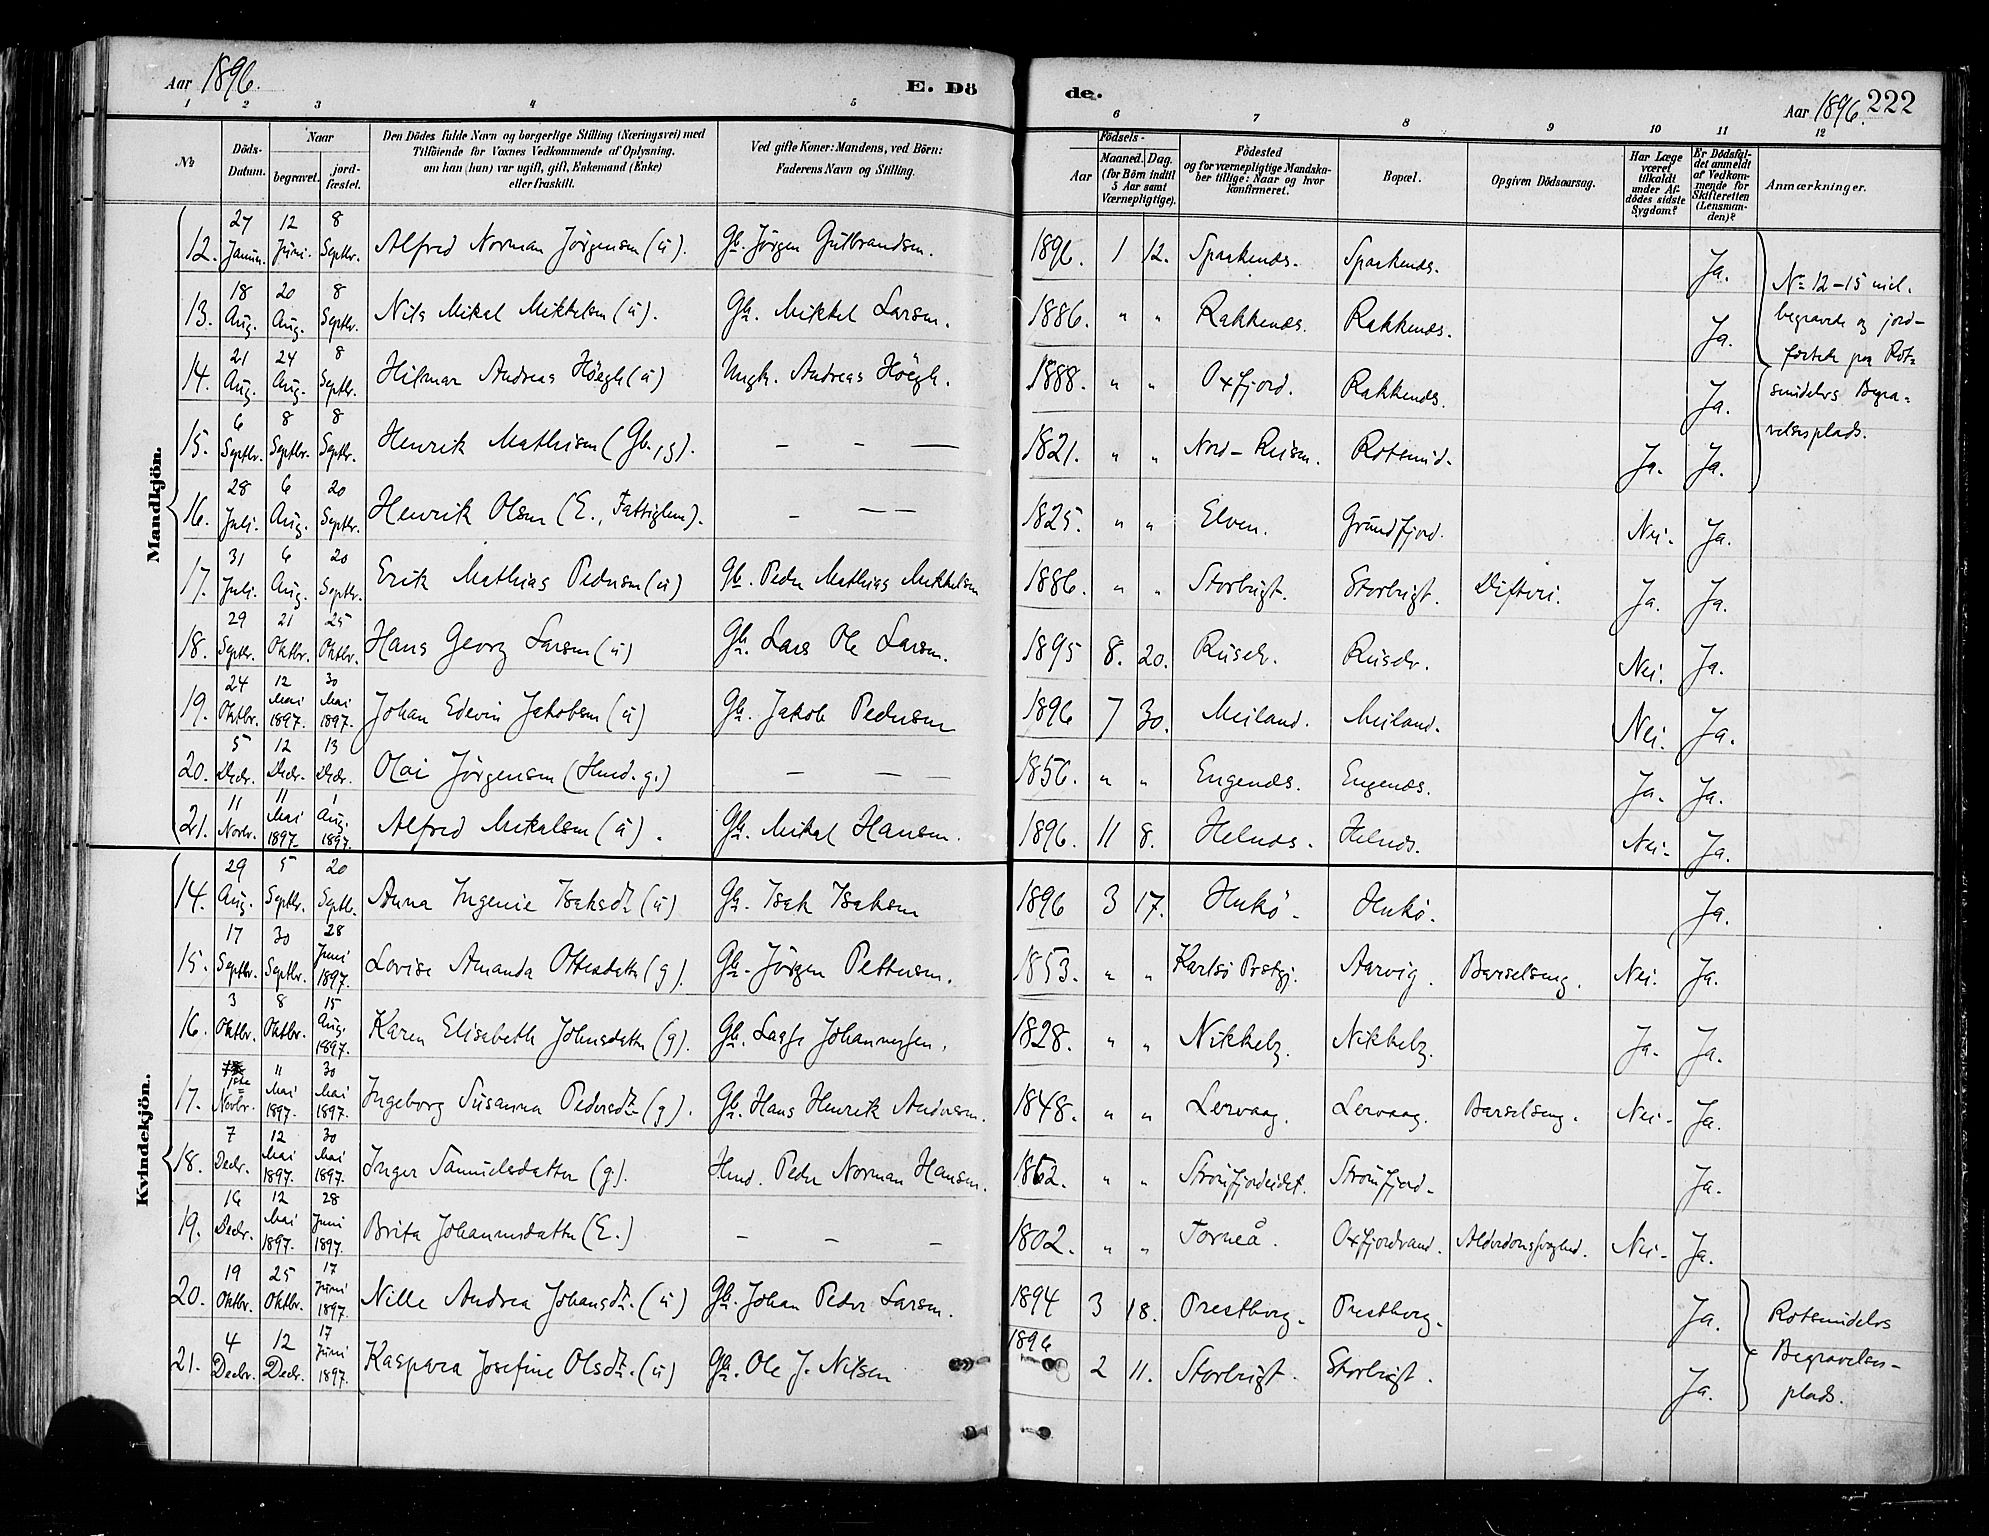 Aar 1896.
E. Dö
de.
Aar 1896. 222
1 2 3 4 5 6 7 8 9 10 11 12
№
Döds-Datum.
Naar
begravet.
jord-fæstet.
Den Dödes fulde Navn og borgerlige Stilling (Næringsvei) med
Tilföiende for Voxnes Vedkommende af Oplysning,
om han (hun) var ugift, gift, Enkemand (Enke)
eller fraskilt.
Ved gifte Koner: Mandens, ved Börn:
Faderens Navn og Stilling.
Födsels-
Aar Maaned. Dag.
(for Börn indtil
5 Aar samt
Værnepligtige).
Födested
og for værnepligtige Mandska-
ber tillige: Naar og hvor
konfirmeret.
Bopæl.
Opgiven Dödsaarsag.
Har Læge
været
tilkaldt
under Af-
dödes sidste
Sygdom?
Er Dödsfal-
det anmeldt
af Vedkom-
mende for
Skifteretten
(Lensman-
den)?
Anmærkninger.
Mandkjön.
12. 27 Januar. 12 Juni. 8 Septbr. Alfred Norman Jörgensen (u). Gb. Jörgen Gulbrandsen. 1896. 1 12. Spaakenæs. Spaakenæs. Ja.
13. 18 Aug. 20 Aug. 8 Septbr. Nils Mikal Mikkelsen (u). Gb. Mikkel Larsen. 1886. " " Rakkenæs. Rakkenæs. Ja.
14. 21 Aug. 24 Aug. 8 Septbr. Hilmar Andreas Höegh (u) Ungk. Andreas Höegh. 1888. " " Oxfjord. Rakkenæs. Ja.
15. 6 Septbr. 8 Septbr. 8 Septbr. Henrik Mathisen (Gb., g). — — — 1821. " " Nord-Reisen. Rotsund. Ja. Ja.
N= 12-15 incl.
begravede og jord-
fæstede paa Rot=
sundelvs Begra=
velsesplads.
16. 28 Juli. 6 Aug. 20 Septbr. Henrik Olsen (E., Fattiglem). — — — 1825. " " Elven. Grundfjord. Nei. Ja.
17. 31 Juli. 6 Aug. 20 Septbr. Erik Mathias Pedersen (u) Gb. Peder Mathias Mikkelsen 1886. " " Storbugt. Storbugt. Difteri. Ja. Ja.
18. 29 Septbr. 21 Oktbr. 25 Oktbr. Hans Georg Larsen (u) Gb. Lars Ole Larsen. 1895 8. 20. Ruselv. Ruselv. Nei. Ja.
19. 24 Oktbr. 12 Mai 1897. 30 Mai 1897. Johan Edevin Jakobsen (u) Gb. Jakob Pedersen 1896 7 30. Meiland. Meiland. Nei. Ja.
20. 5 Decbr. 12 Decbr. 13 Decbr. Olai Jörgensen (Husmd. g.) — — — 1856. " " Engenæs. Engenæs. Ja. Ja.
21. 11 Novbr. 11 Mai 1897. 1 Aug. 1897. Alfred Mikalsen (u). Gb. Mikal Hansen. 1896. 11 8. Helnæs. Helnæs. Nei. Ja.
Kvindekjön.
14. 29 Aug. 5 Septbr. 20 Septbr. Anna Ingenie Isaksdtr (u) Gb. Isak Isaksen 1896 3 17. Hukö. Hukö. Ja.
15. 17 Septbr. 30 Septbr. 28 Juni 1897. Lovise Amanda Ottesdatter (g). Gb. Jörgen Pettersen. 1853. " " Karlsö Prstgj. Aarvig. Barselseng. Nei. Ja.
16. 3 Oktbr. 8 Oktbr. 15 Aug. 1897. Karen Elisabeth Johnsdatter (g). Gb. Johannessen. 1828. " " Nikkelbg. Nikkelbg. Ja. Ja.
17. 1ste Novbr. 11 Mai 1897. 30 Mai 1897. Ingeborg Susanna Pedersdtr (g). Gb. Hans Henrik Andersen. 1848. " " Lervaag. Lervaag. Barselseng. Nei. Ja.
18. 7 Decbr. 12 Mai 1897. 30 Mai 1897. Inger Samuelsdatter (g). Husmd. Peder Norman Hansen. 1862. " " Straumfjordeidet. Straumfjord. Ja.
19. 16 Decbr. 12 Mai 1897. 28 Juni 1897. Brita Johannesdatter (E.) — — — 1802. " " Torneå. Oxfjordvand. Alderdomssvaghed. Nei. Ja.
20. 19 Oktbr. 25 Oktbr. 17 Juni 1897. Nille Andrea Johansdtr. (u) Gb. Johan Peder Larsen. 1894 3 18. Prestberg. Prestberg. Ja.
21. 4 Decbr. 12 Decbr. 17 Juni 1897. Kaspara Josefine Olsdtr. (u) Gb. Ole J. Nilsen 1896 2 11. Storbugt. Storbugt. Ja.
Rotsundelvs
Begravelses-
plads.